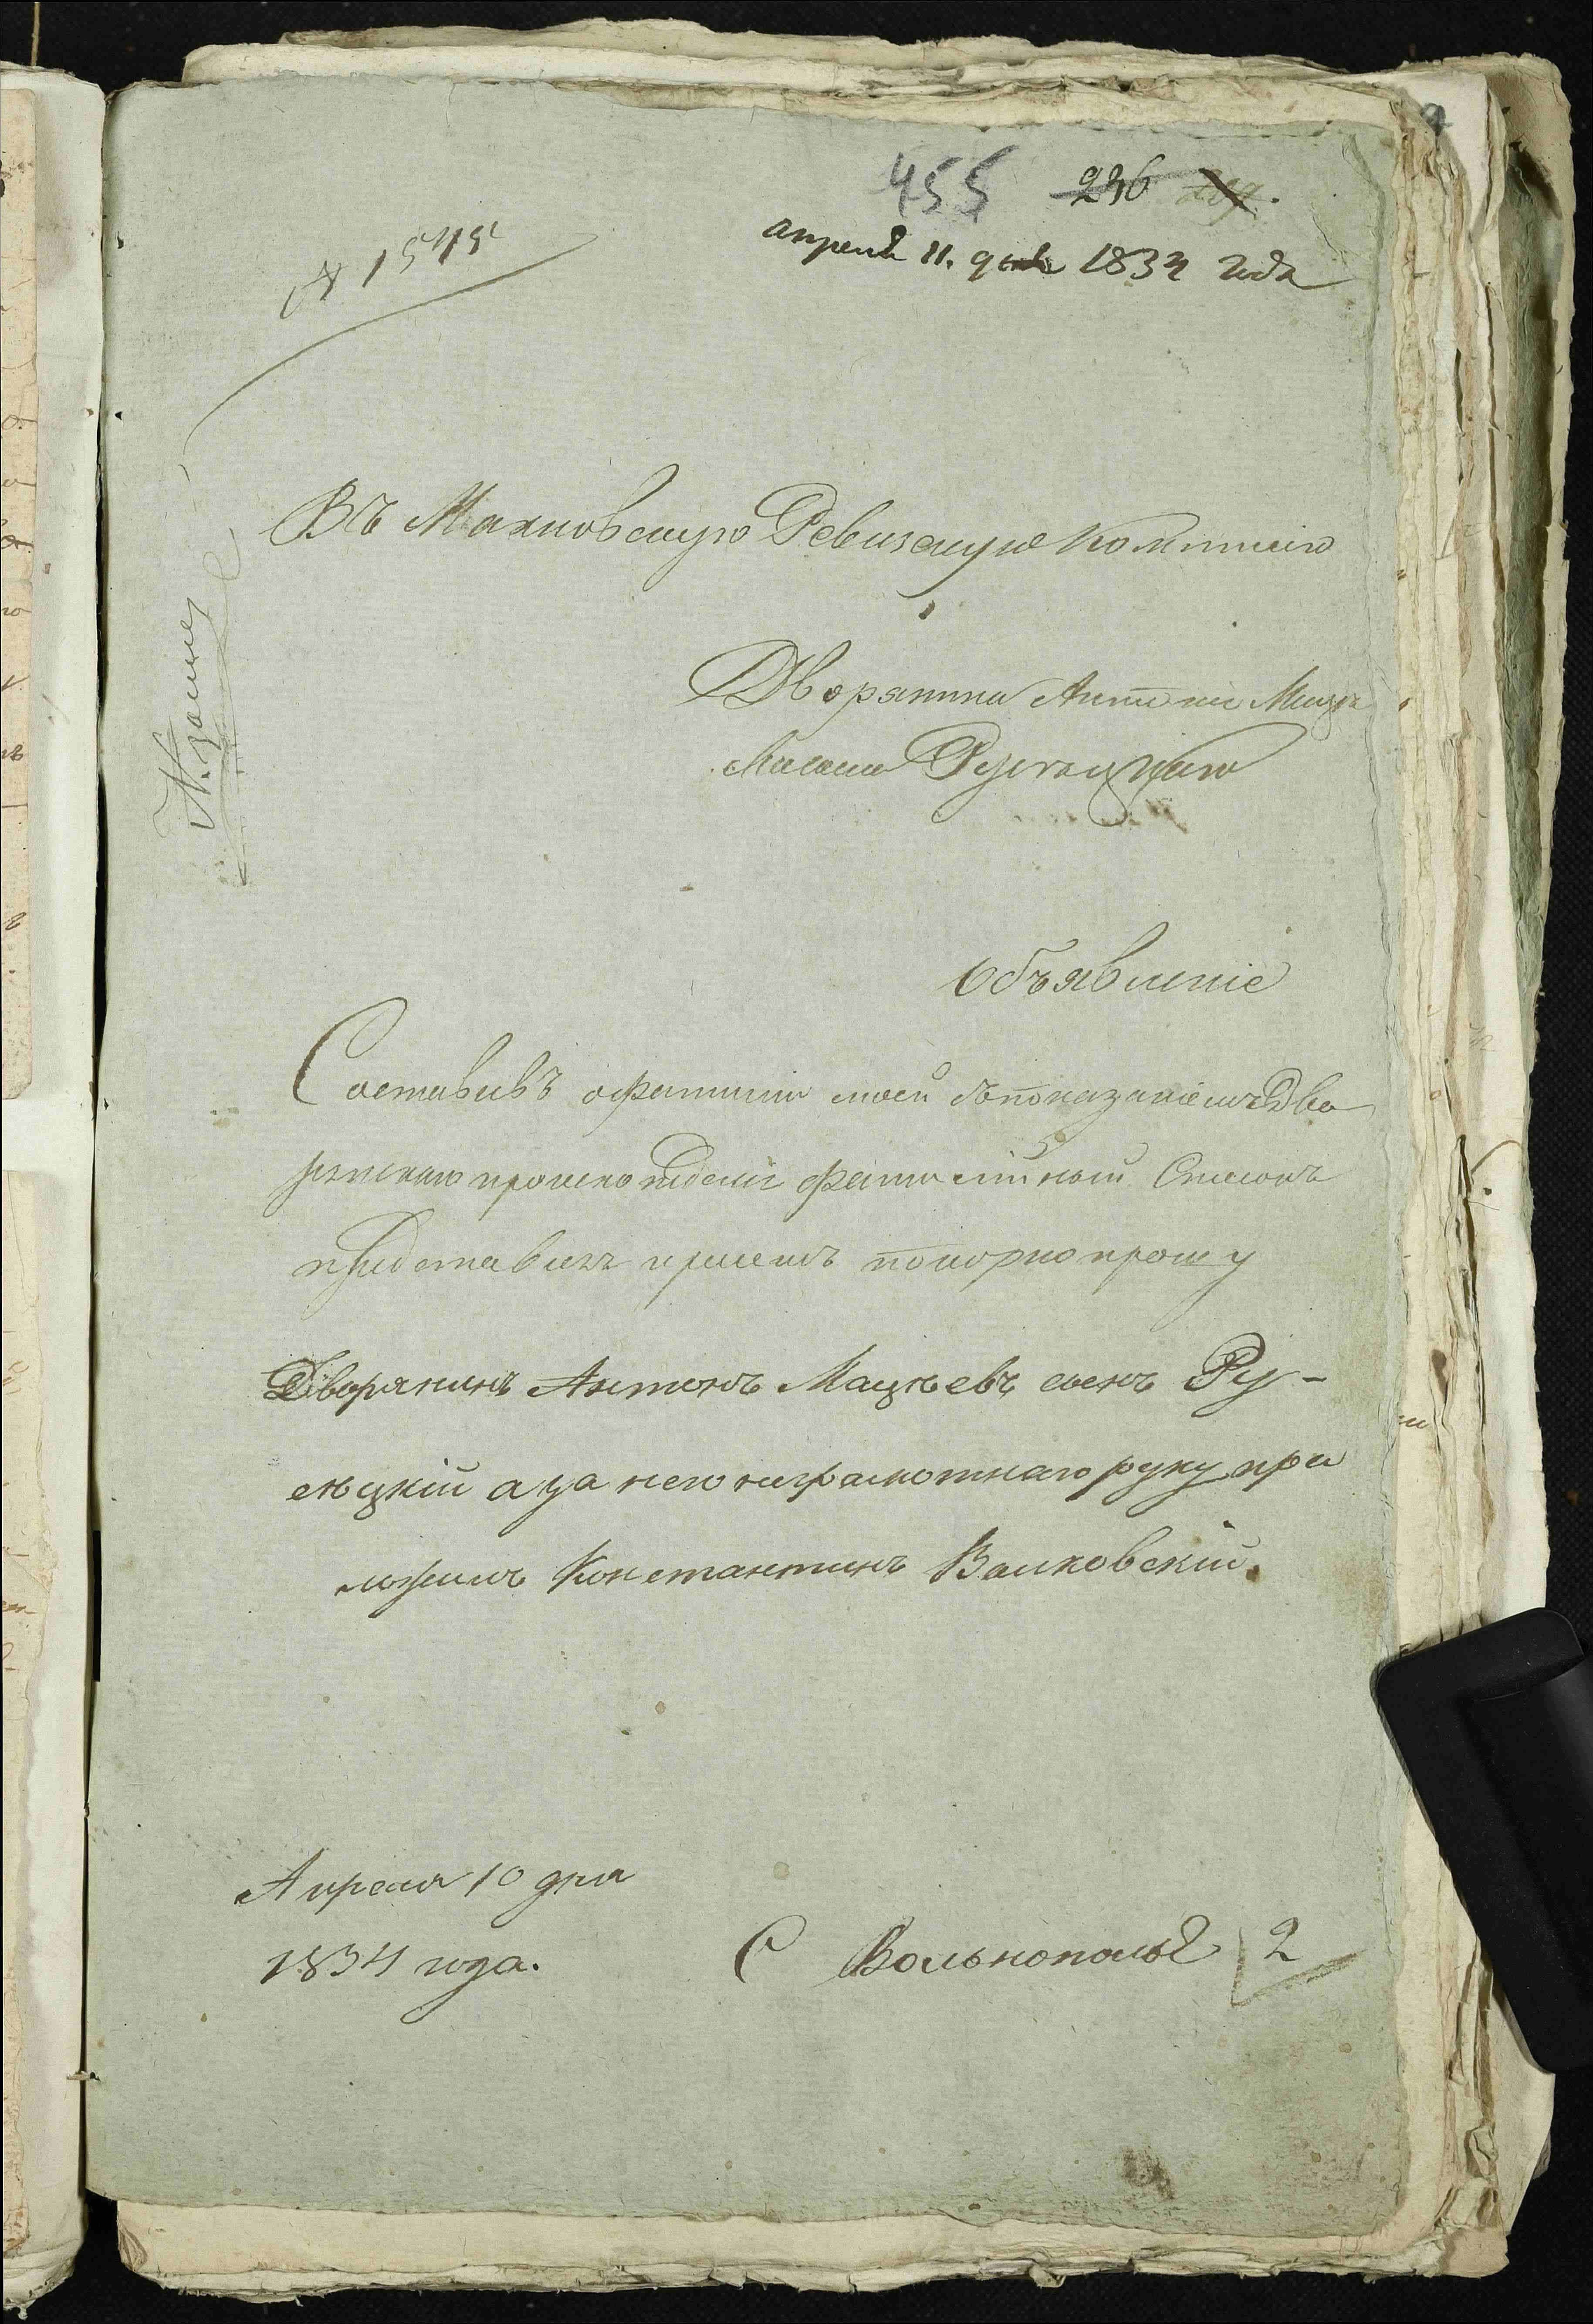 455 236
апреля 11. дня 1834 года
№ 1545
Въ Махновскую Ревизскую Коммисію
Дворянина Антона Мацѣя
сына Русѣцкаго
Объявленіе
Составивъ о фамиліи моей съ показаніемъ Дво
рянскаго происхожденія фамилійный Списокъ
представляя при семъ покорно прошу
Дворянинъ Антонъ Мацѣевъ сынъ Ру-
сѣцкій а за него неграмотнаго руку при
ложилъ Константинъ Валковскій.
Апреля 10 дня
1834 года.
С Вольнополье 2